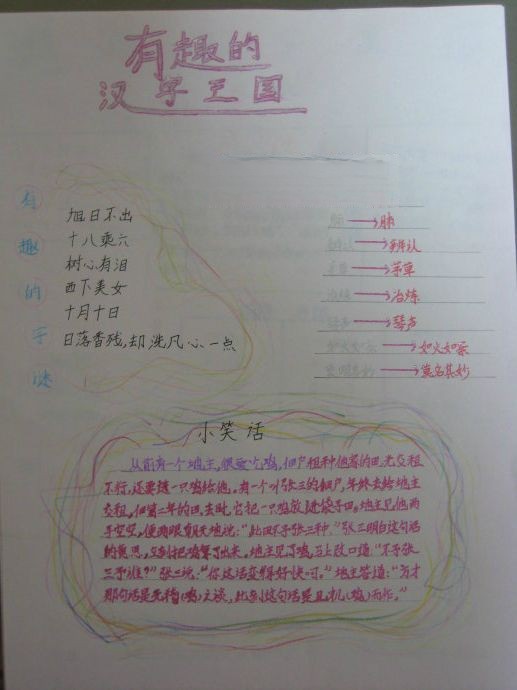 有趣的
汉字王国
有趣的字谜
旭日不出
十八乘六
树心有泪
西下美女
十月十日
日落香残,却洗凡心一点
肺
辨认→辩认
茅草
冶炼
琴声
如火如荼
莫名其妙
小笑话
从前有一个地主,很爱吃鸡,佃户租种他家的田,光交租
不行,还要送一只鸡给他。有一个叫张三的佃户,年终去给地主
交租,佃第二年的田。去时,它把一只鸡放进袋子里。地主见他两
手空空,便两眼朝天地说:“此田不予张三种。”张三明白这句话
的意思,立刻把鸡拿了出来。地主见了鸡,马上改口道:“不予张
三予谁?”张三说:“你这话变得好快呵。”地主答道:“方才
那句话是无稽(鸡)之谈,此刻这句话是见机(鸡)而作。”